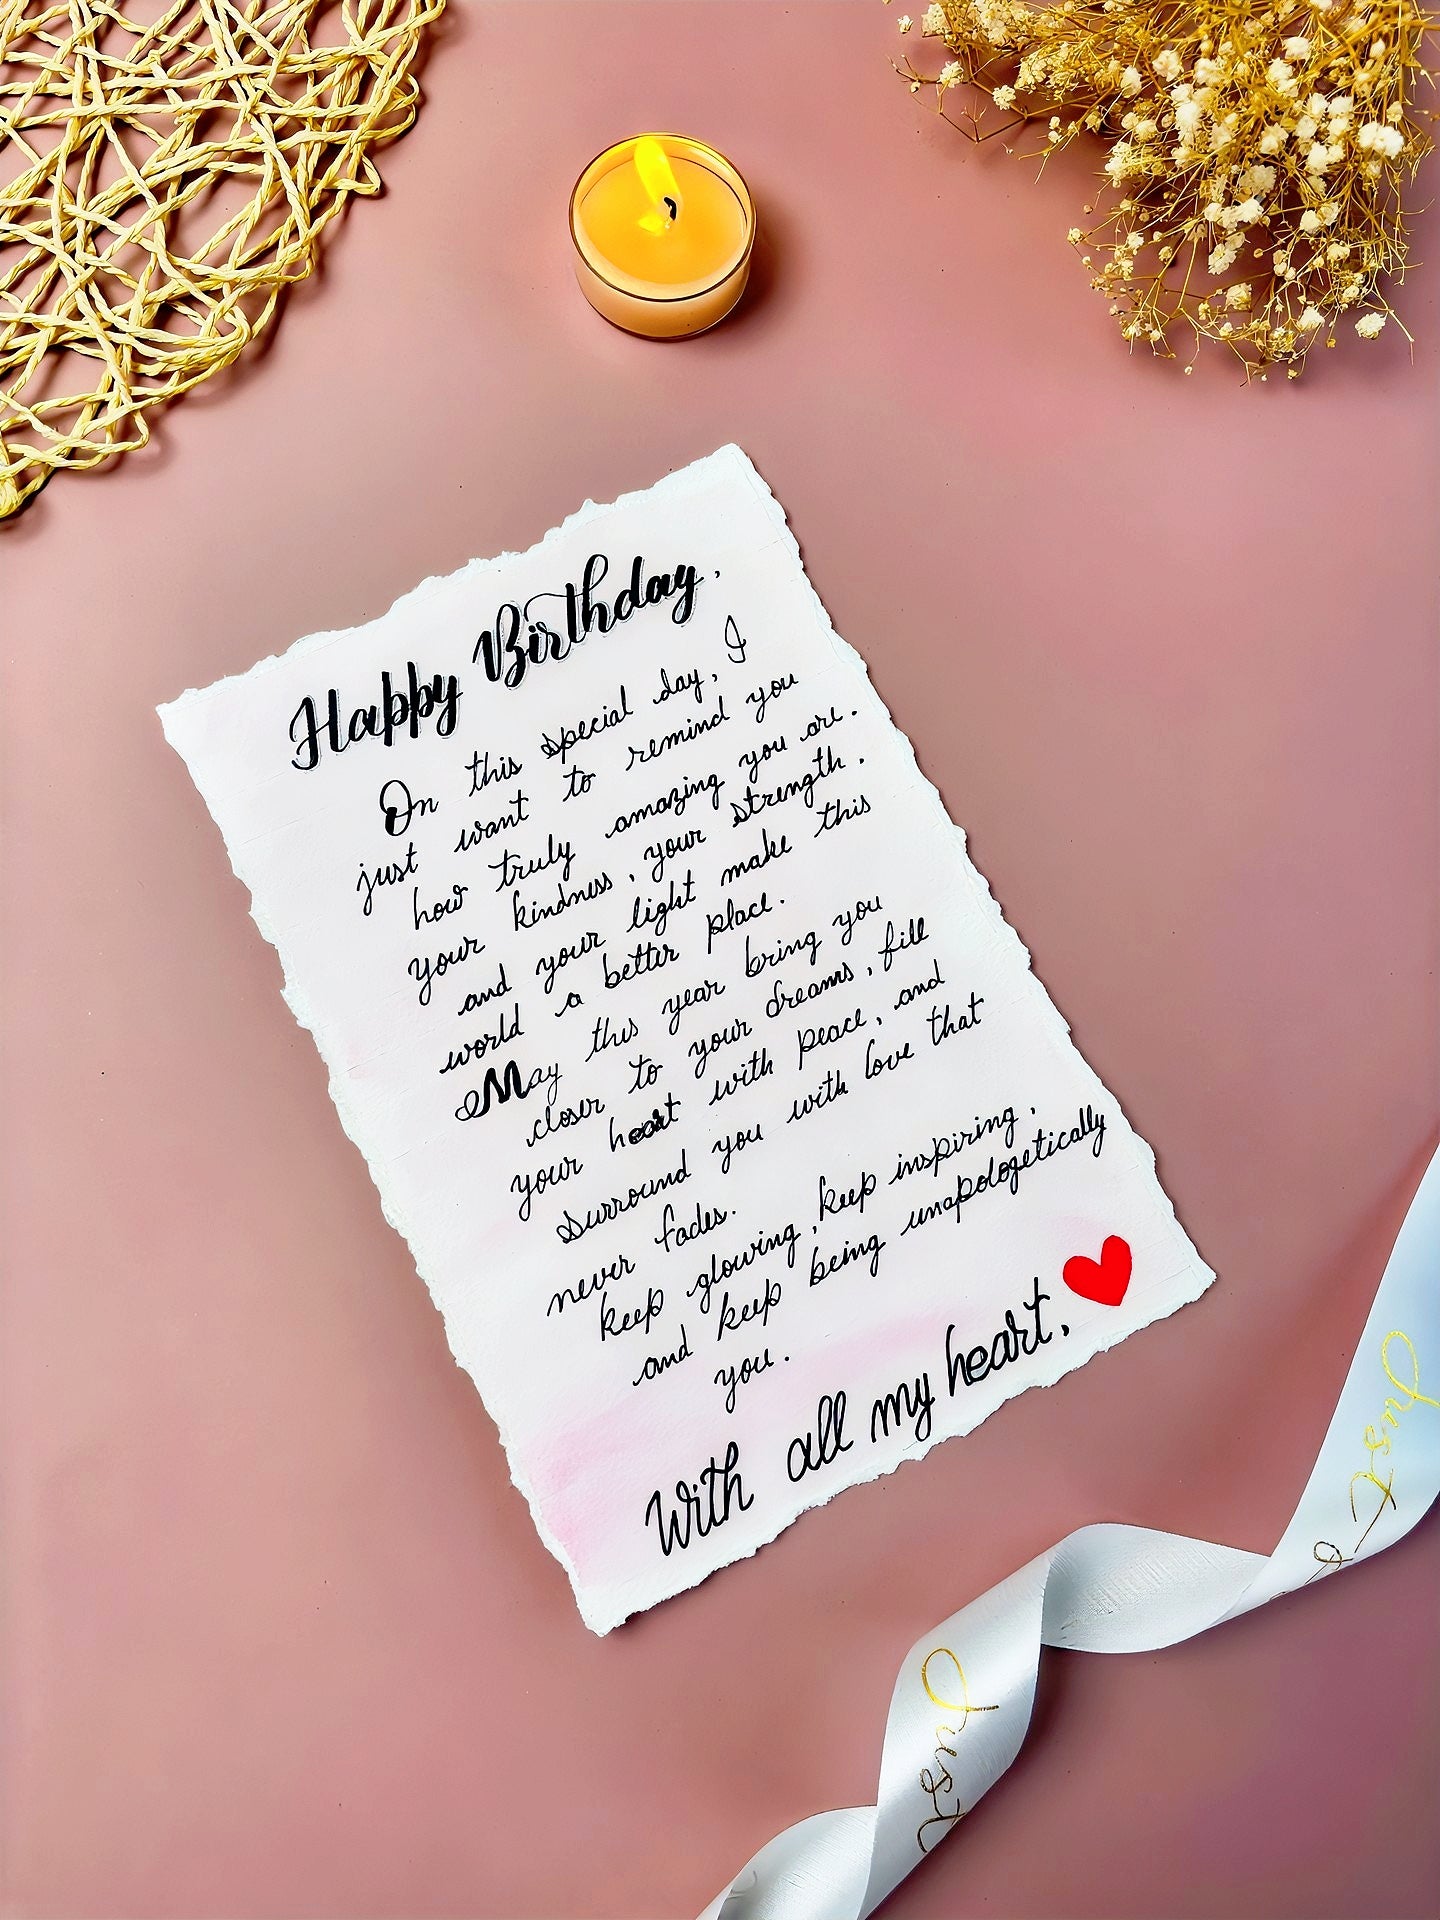 Happy Birthday,
On this special day, I
just want to remind you
how truly amazing you are.
your kindness, your strength,
and your light make this
world a better place.
May this year bring you
closer to your dreams, fill
your heart with peace, and
surround you with love that
never fades.
keep glowing, keep inspiring,
and keep being unapologetically
you.
With all my heart,
Just
Just